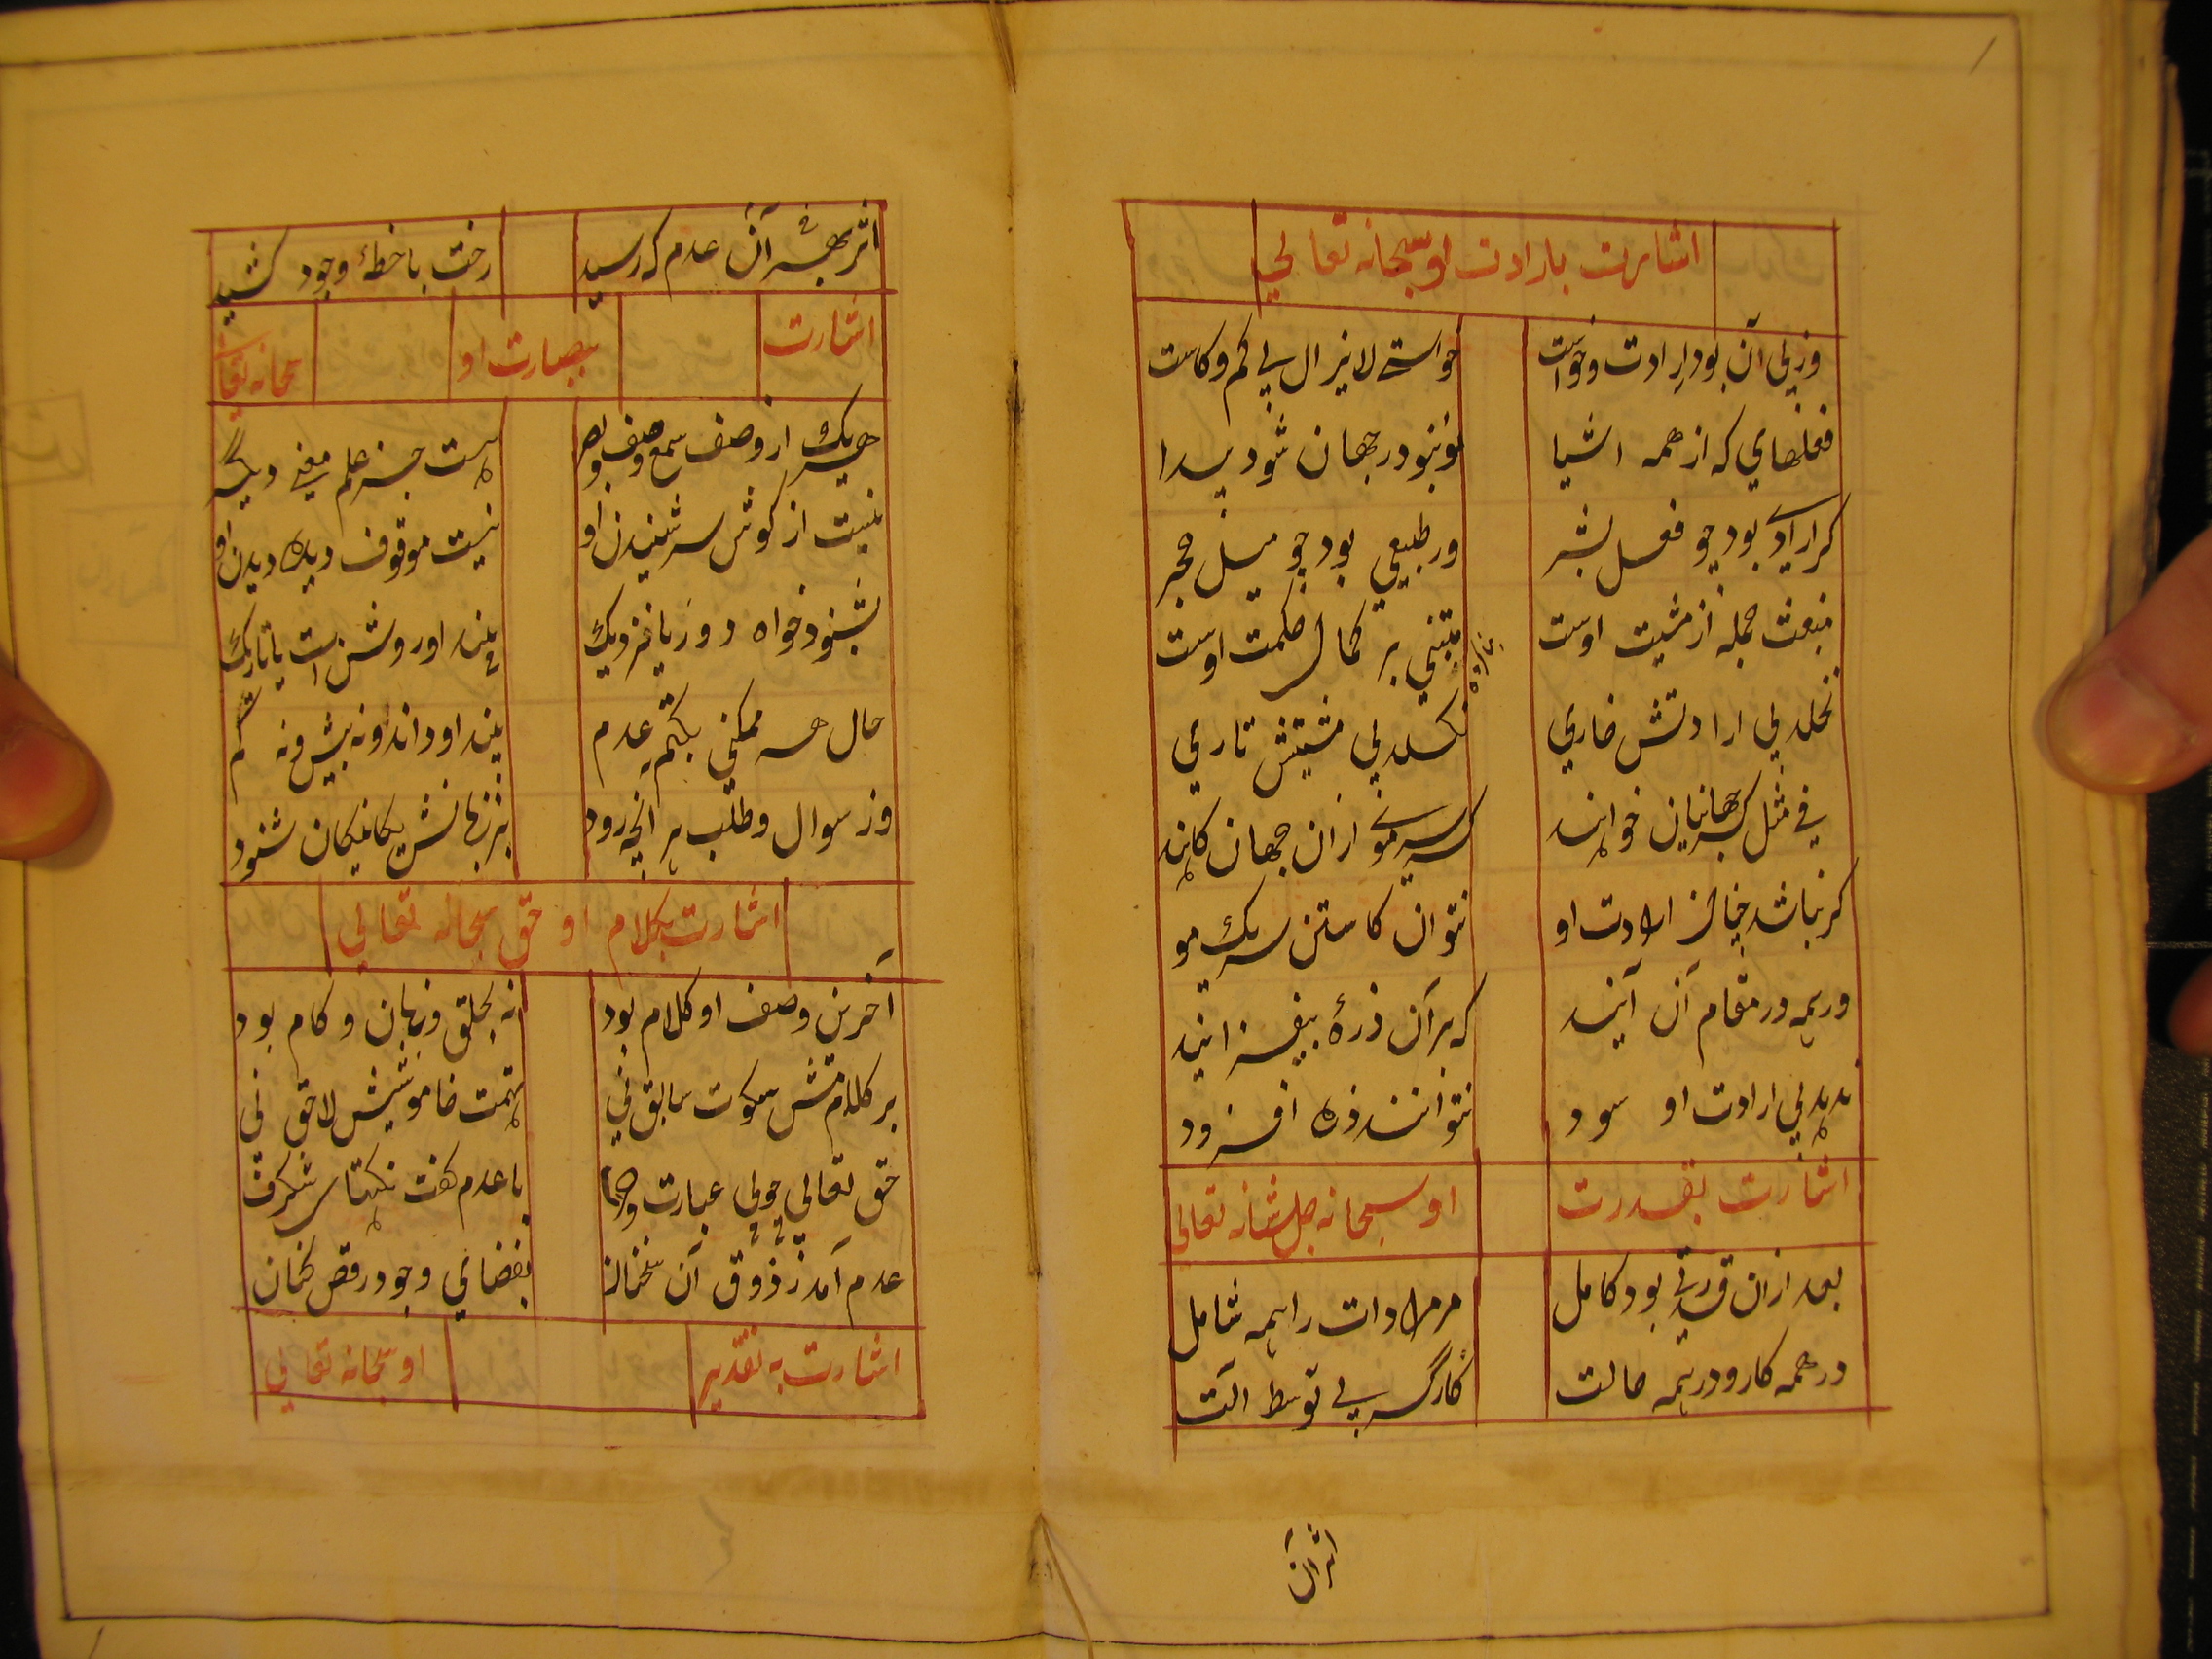 اشارت بارادت او سبحانه تعالي
وزپی آن بود ارادت وخواست خواستے لایزال بی کم وکاست
فعلهاي که از همه اشیا نوبنو در جهان شود پیدا
کر ارادی بود چو فعل بشر ور طبیعي بود چو میل حجر
منبعث جمله از مشیت اوست مبتني بر کمال حکمت اوست
نخلد بی ارادتش خاري نکسلد بی مشیتش تاري
في مثل کر جهانیان خواهند که سر موے ازان جهان کاهند
کر نباشد چنان ارادت او نتوان کاستن سر یک مو
ور همه در مقام آن آیند که بر آن ذرۀ بیفزایند
ندهد بی ارادت او سود نتوانند ذره افزود
اشارت بقدرت او سبحانه جل شانه تعالی
بعد ازان قدرتی بود کامل مر مرادات را همه شامل
در همه کار ودر همه حالت کارگر بی توسط الت
اثر آن
اثر آن بهر عدم که رسید رخت باخطۀ وجود کشید
اشارت ببصارت او سبحانه تعالی
هر یک از وصف سمع وصف بصر هست جز علم معنی دیگر
نیست از کوش سر شنیدن او نیست موقوف دیده دیدن او
بشنود خواه دور یا نزدیک بیند او روشن است یا تاریک
حال هر ممکنی بکتم عدم بیند او داند ونه بیش ونه کم
وز سوال وطلب هر آنچه رود بزبانهاش یکان یکان شنود
اشارت بکلام او حق سبحانه تعالی
آخرین وصف او کلام بود نه بحلق وزبان و کام بود
بر کلامش سکوت سابق نی تهمت خامشیش لاحق نی
حق تعالی چو بی عبارت وحرف با عدم گفت نکتهاے شکرف
عدم آمد ز ذوق آن سخنان بفضاي وجود رقص کنان
اشارت به تقدیر او سبحانه تعالی